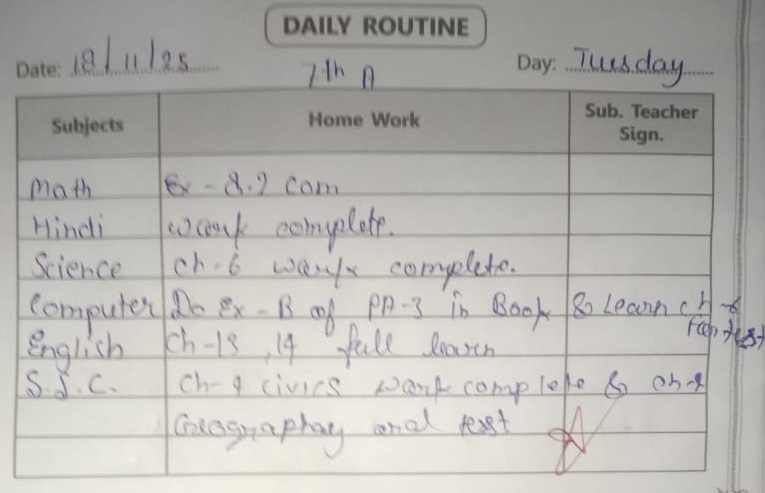 DAILY ROUTINE
Date: 18/11/25 7th A Day: Tuesday
Subjects Home Work Sub. Teacher Sign.
Math Ex - 8.2 com
Hindi work complete.
Science ch-6 work complete.
Computer Do Ex-B of PA-3 in Book & Learn ch-6
for test
English Ch-13, 14 full learn
S.S.C. Ch-9 civics work complete & ch-9
Geographay oral test